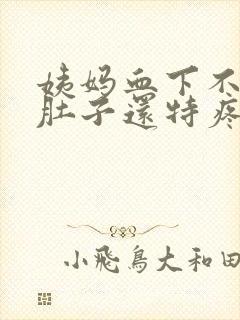 姨妈血下不
肚子還特疼
小飛鳥大和田